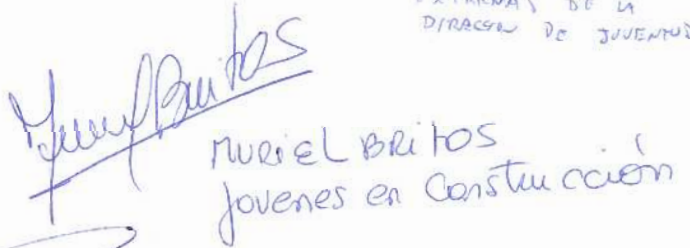 DE LA
DIRECCION DE JUVENTUD
Muriel Britos
MURIEL BRITOS
Jovenes en Construcción